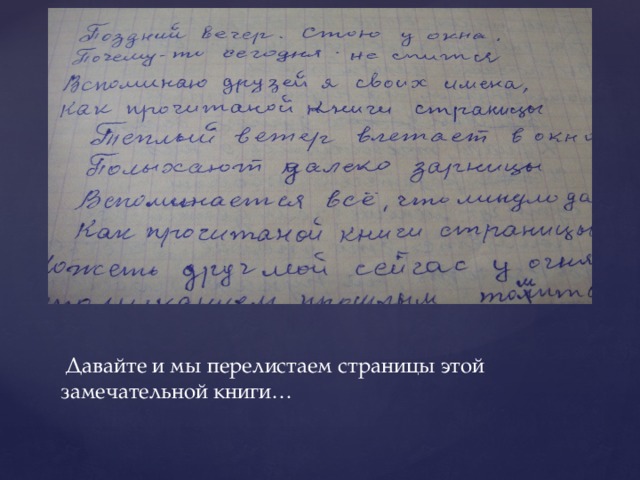 Поздний вечер. Стою у окна.
Почему-то сегодня не спится
Вспоминаю друзей я своих имена,
Как прочитаной книги страницы
Теплый ветер влетает в окн
Полыхают далеко зарницы
Вспоминается всё, что минуло да
Как прочитаной книги страницы
ожеть друг мой сейчас у огня
прошлым томится
Давайте и мы перелистаем страницы этой
замечательной книги…